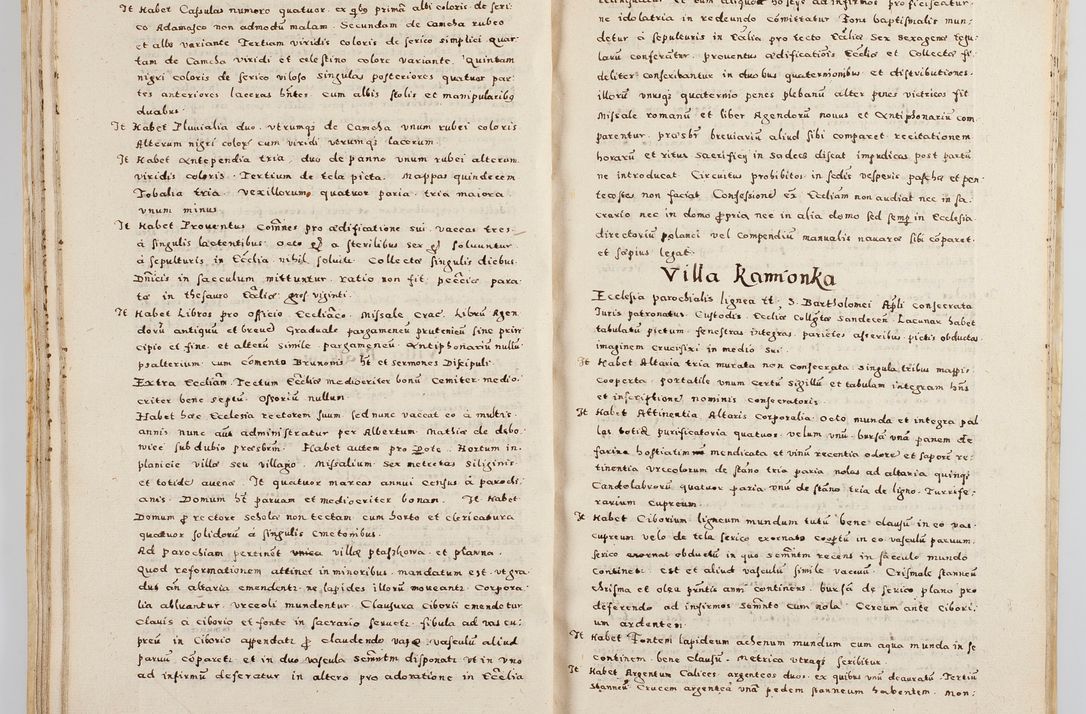 It Habet Capsulas numero quatuor. ex qbs primã albi coloris de seri-
co Adamasco non admodũ malam. Secundam de Camcha rubeo
et albo variante Tertiam viridis coloris de serico simplici quar-
tam de Camcha viridi et celestino colore variante. Quintam
nigri coloris de serico viloso singulas posteriores quatuor par-
tes anteriores laceras hñtes cum albis stolis et manipularibq
duabus.
It Habet Pluvialia duo. vtrumqꝫ de Camcha vnum rubei coloris.
Alterum nigri color cum viridi vtrumqꝫ lacerum.
It Habet Antependia tria, duo de panno vnum rubei alterum
viridis coloris. Tertium de tela picta. Mappas quindecem
Tobalia tria. Vexillorum quatuor paria. tria maiora
vnum minus
It Habet Prouentus Com̃nes pro ædificatione sui. vaccas tres
à singulis lactentibus. octo à sterilibus sex soluuntur
à sepulturis in Ecclia nihil soluit. Collectæ singulis diebus.
Dñicis in sacculum mittuntur. ratio non fit. pecciæ para-
tæ in thesauro Ecłiæ gros viginti.
It Habet Libros pro officio Eccliaco. Missale Crac. Librũ Agen-
dorũ antiquũ et breue Graduale pargameneũ prutenicũ sine prin
cipio et fine. et alterũ simile. pargameneũ Antiphonariũ nullũ
psalterium cum cõmento Brunonis ht et sermones Discipuli.
Extra Eccliam. Tectum Eccliæ mediocriter bonũ Cemiter medio-
criter bene septũ. Ossoriũ nullum
Habet hæc Ecclesia rectorem suum sed nunc vaccat eo à multis
annis nunc aũt administratur per Albertum Mathiæ de debo-
wiec sub dubio præsbrm. Habet autem pro Dote. Hortum in
planicie villæ seu villagio. Missalium. Sex metretas Siliginis
et totidẽ auenæ. It quatuor marcas annui census à parochi-
anis. Domum ht paruam et mediocriter bonam. It Habet
Domum p rectore Scholæ non tectam cum horto et clericatura
quatuor solidorũ à singulis Cmetonibus.
Ad parochiam pertinet vnica villæ ptaszkowa. et planna.
Quod reformationem attinet in minoribus. mandatum est. vt gra-
dus añ altaria emendentr ne lapides illorũ moueantr Corpora-
lia abluantur. vrceoli mundentur. Clausura Ciborii emendetur
Clauis à Ciborio et fonte in sacrario seruetr fibula ad vas cu-
preũ in Ciborio appendatr p claudendo vase vasculũ aliud
paruũ cõparetr et in duo vascula semñtm disponatr vt in vno
ad infirmũ deferatur in altero pro adoratione in Ecclia
ne idolatria in redeundo cõmitratur Fons baptismalis mun-
detur à sepulturis in Ecłia pro tecto Eccliæ Sex sexagenæ tegu
larũ conferãtur. prouentus ædificatiõis Eccliæ et Collectæ fi-
deliter conscribantur in duobus quaternionibus et distributiones
illorũ vnusqꝫ quaternio penes plebanũ alter penes victricos fit
Missale romanũ et liber Agendorũ nouus et Antiphonariũ com-
parentur. præsbr breuiarium aliud sibi comparet recitationem
horarũ et ritus Sacrificij in Sadecz discat impudicas post partũ
ne introducat Circuitus prohibitos in sedis vesperis paschæ et pen-
tecostes non faciat Confessiones ex Eccliam non audiat nec in sa-
crario nec in domo propria nec in alia domo sed semp in Ecclesia
directoriũ polanci vel Compendiũ manualis nauaræ sibi cõparet
et sæpius legat.
Villa Kamionka
Ecclesia parochialis lignea tt. S. Bartholomei Apli consecrata
Iuris patronatus Custodis. Eccliæ Collgtæ Sandecen. Lacunar habet
tabulatũ pictum. fenestras integras. parietes asseribus pictis obductas
imaginem Crucifixi in medio sui.
It Habet Altaria tria murata non consecrata. singula tribus mappis
cooperta. portatile vnum certũ sigillũ et tabulam integram hñs
et inscriptione nominis consecratoris.
It Habet Attinentia Altaris Corporalia. octo munda et integra pal
las totidẽ purificatoria quatuor. velum vnũ. bursã vnã panem de
farina hostiatim mendicata et vinũ recentia odore et sapore re-
tinentia vrceolorum de stãno tria paria nolas ad altaria. quinqꝫ
Candelabrorũ quatuor paria vnũ de stãno tria de ligno. Turrife-
rarium cupreum.
It Habet Ciborium ligneum mundum tutũ bene clausũ in eo vas
cupreum velo de tela serico exornato coptũ in eo vasculũ paruum
serico exornat obductũ in quo semñtm recens in sacculo mundo
continetr. est et aliud vasculũ simile vacuũ. Crismale stanneũ
Chrisma et oleũ pñtis anni continens. bursã de serico plano pro
deferendo ad infirmos semñto cum nola. Cereum ante Cibori-
um ardentem.
It Habet Fontem lapideum achenum mundum cum aqua munda in se
continem bene clausũ. Metrica vtraqꝫ scribitur
It Habet Argentum Calices argenteos duos. ex quibus vnũ deauratũ. Tertiũ
stanneũ Crucem argenteã vnã pedem stanneum habentem. Mon-